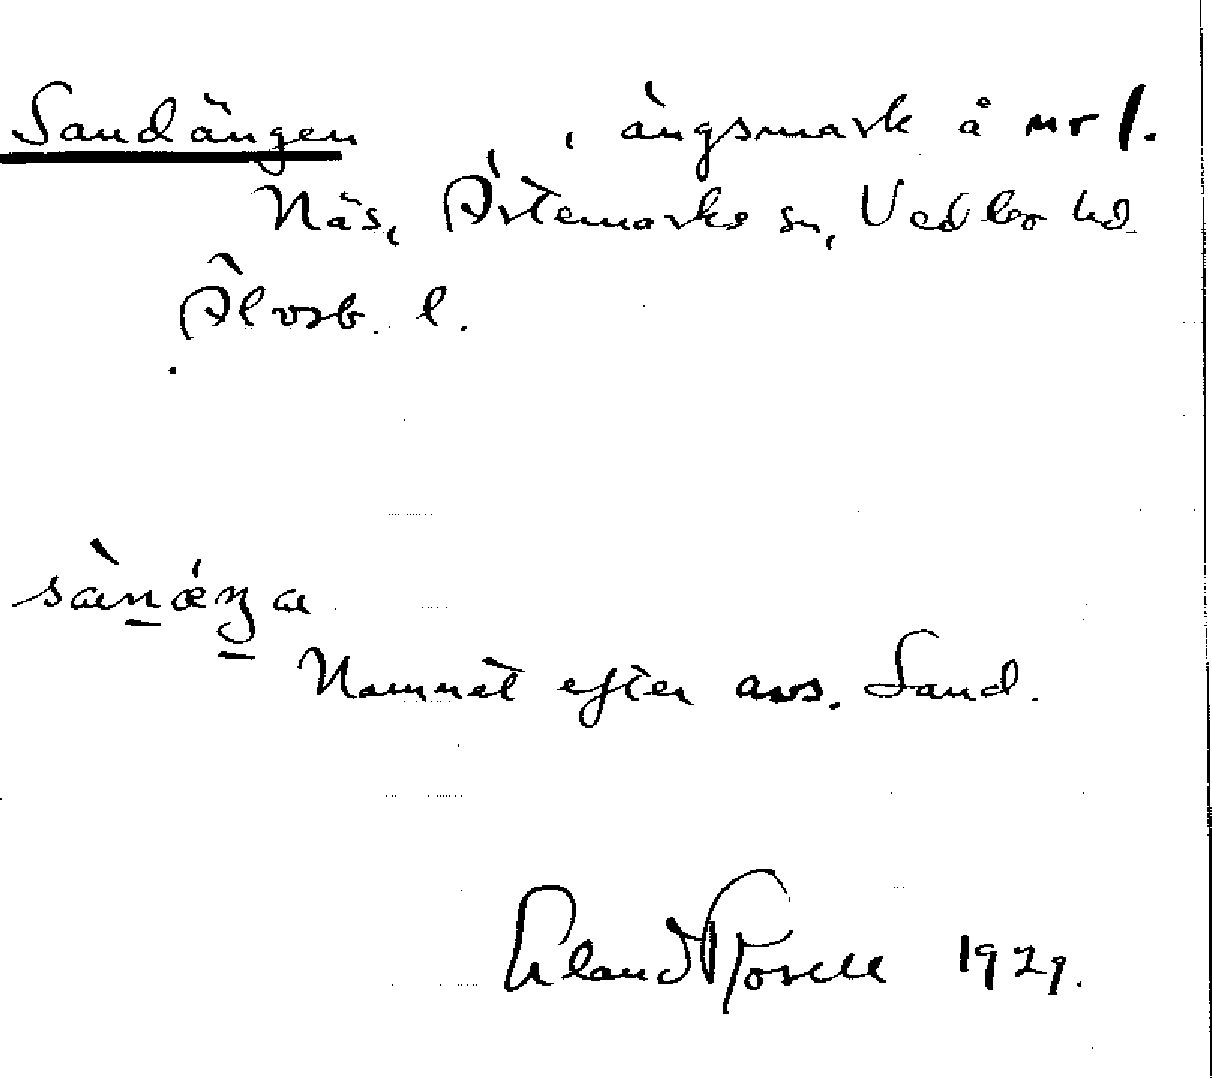 Sandängen , ängsmark å nr 1.
Näs, Ärtemarks sn, Vedbo hd
Älvsb. l.
sànǽŋa
Namnet efter avs. Sand.
Erland Rosell 1929.